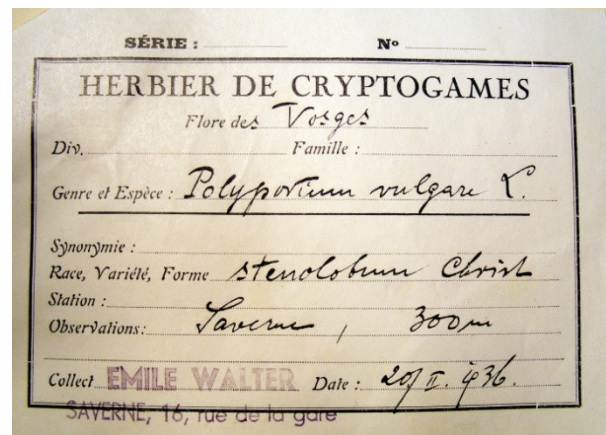 SÉRIE : Nº
HERBIER DE CRYPTOGAMES
Flore des Vosges
Div. Famille :
Genre et Espèce : Polypodium vulgare L.
Synonymie :
Race, Variété, Forme stenolobum Christ
Station :
Observations: Saverne, 300m
Collect EMILE WALTER Date : 20/II. 1936.
SAVERNE, 16, rue de la gare